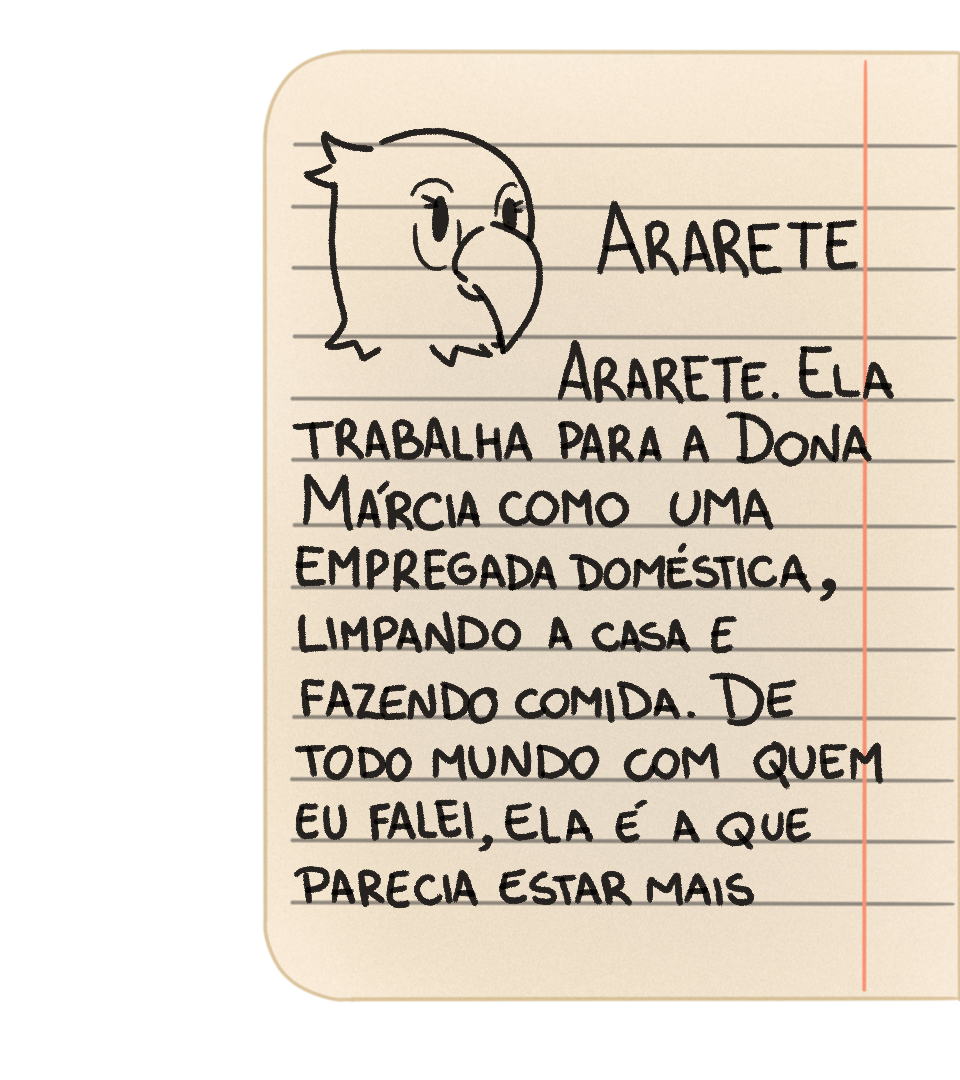 ARARETE
ARARETE. ELA
TRABALHA PARA A DONA
MÁRCIA COMO UMA
EMPREGADA DOMÉSTICA,
LIMPANDO A CASA E
FAZENDO COMIDA. DE
TODO MUNDO COM QUEM
EU FALEI, ELA É A QUE
PARECIA ESTAR MAIS